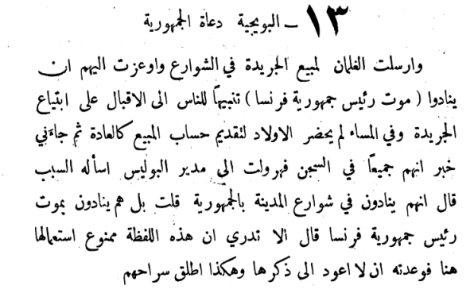 ١٣ – البويجية دعاة الجمهورية
وارسلت الغلمان لمبيع الجريدة في الشوارع واوعزت اليهم ان
ينادوا ( موت رئيس جمهورية فرنسا ) تنبيهًا للناس الى الاقبال على ابتياع
الجريدة وفي المساء لم يحضر الاولاد لتقديم حساب المبيع كالعادة ثم جاءني
خبر انهم جميعًا في السجن فهرولت الى مدير البوليس اسأله السبب
قال انهم ينادون في شوارع المدينة بالجمهورية قلت بل هم ينادون بموت
رئيس جمهورية فرنسا قال الا تدري ان هذه اللفظة ممنوع استعمالها
هنا فوعدته ان لا اعود الى ذكرها وهكذا اطلق سراحهم